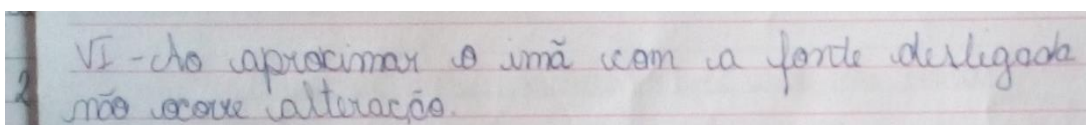 VI - Ao aprocimar o imã com a fonte desligada
2 não ocorre alteração.